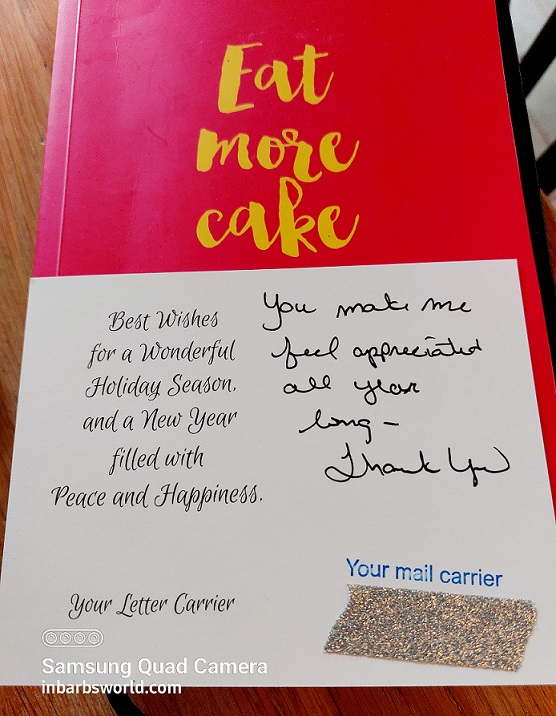 Eat
more
cake
Best Wishes
for a Wonderful
Holiday Season,
and a New Year
filled with
Peace and Happiness.
Your Letter Carrier
You make me
feel appreciated
all year
long-
Thank You
Your mail carrier
Samsung Quad Camera
inbarbsworld.com